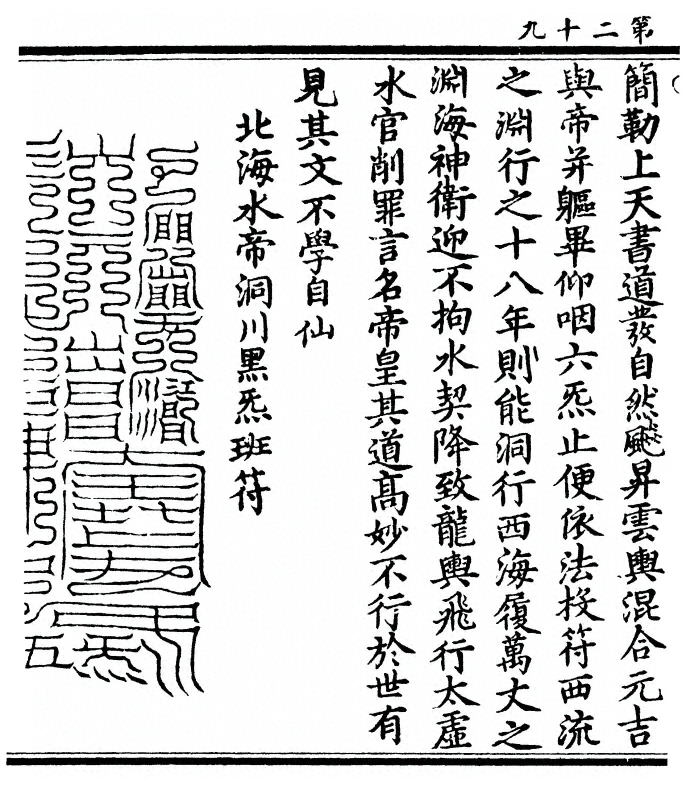 第二十九
簡勒上天書道發自然飈昇雲輿混合元吉
與帝并軀畢仰咽六炁止便依法投符西流
之淵行之十八年則能洞行西海履萬丈之
淵海神衛迎不拘水契降致龍輿飛行太虛
水官削罪言名帝皇其道高妙不行於世有
見其文不學自仙
北海水帝洞川黑炁班符